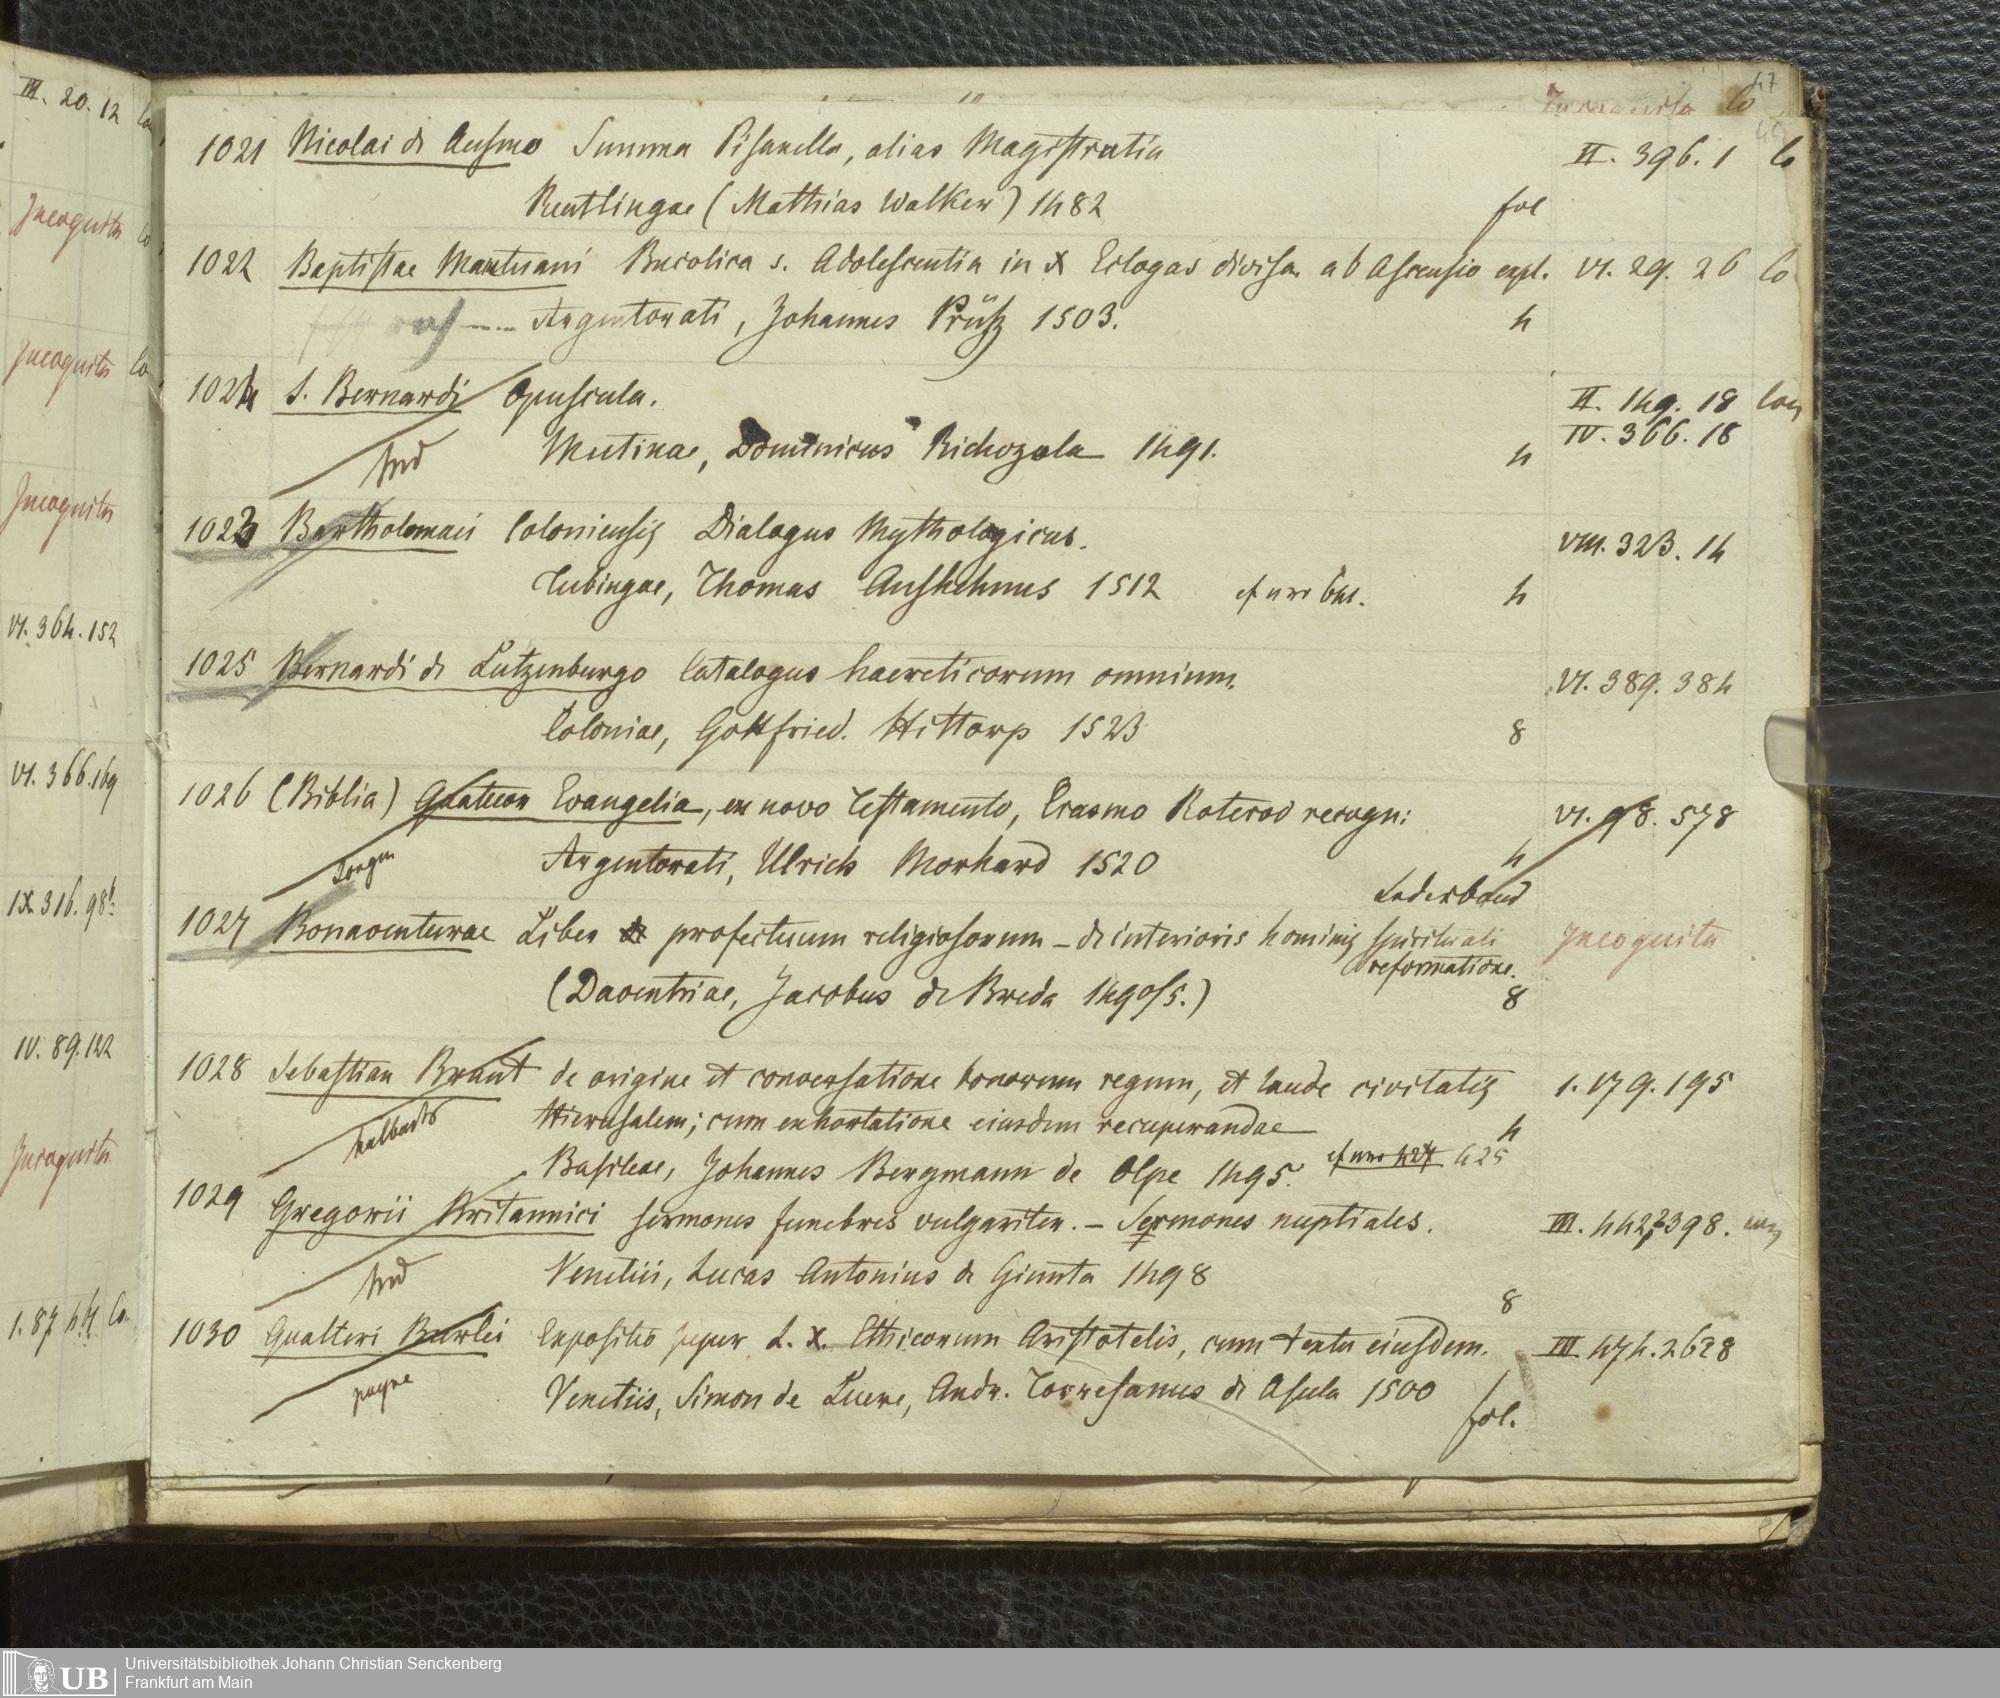 III. 20. 12 Co
Incognita Co
Incognita Co
Incognita
VI. 364. 152
VI. 366. 169
IX 316. 98b
IV. 89. 122
Incognita
1. 87 44 Co
47
Incognita Co
1021 Nicolai de Ausmo Summa Pisanella, alias Magistratia II. 396. 1 Co
Reutlingae (Mathias Walker) 1482 fol
1022 Baptistae Mantuani Bucolica s. Adolescentia in X Eclogas divisa ab Ascensio expl. VI. 29. 26 Co
Argentorati, Johannes Prüß 1503. 4
1024 S. Bernardi Opuscula. II. 149. 18 Con
IV. 366. 18
Mutinae, Dominicus Richozola 1491. 4
1023 Bartholomaei Coloniensis Dialogus Mythologicus. VIII. 323. 14
Tubingae, Thomas Anshelmus 1512 cf nro 641. 4
1025 Bernardi de Lutzenburgo Catalogus haereticorum omnium. VI. 389. 384
Coloniae, Gottfried. Hittorp 1523 8
1026 (Biblia) Quatuor Evangelia, ex novo Testamento, Erasmo Roterod recogn: VI. 98. 578
Argentorati, Ulrich Morhard 1520 4
Lederband
1027 Bonaventurae Liber de profectuum religiosorum – de interioris hominis spirituali Incognita
reformatione.
(Daventriae, Jacobus de Breda 1490/5.) 8
1028 Sebastian Brant de origine et conversatione bonorum regum, et laude civitatis 1. 179. 195
Hierusalem; cum exhortatione eiusdem recuperandae 4
Basileae, Johannes Bergmann de Olpe 1495. cf nro 424 425
1029 Gregorii Britannici sermones funebres vulgariter. – Sermones nuptiales. III. 442, 398.
Venetiis, Lucas Antonius de Giunta 1498 8
1030 Gualteri Burlei Expositio super L. X. Ethicorum Aristotelis, cum textu eiusdem. III. 474. 2628
Venetiis, Simon de Luere, Andr. Torresanus de Asula 1500 fol.
UB Universitätsbibliothek Johann Christian Senckenberg
Frankfurt am Main